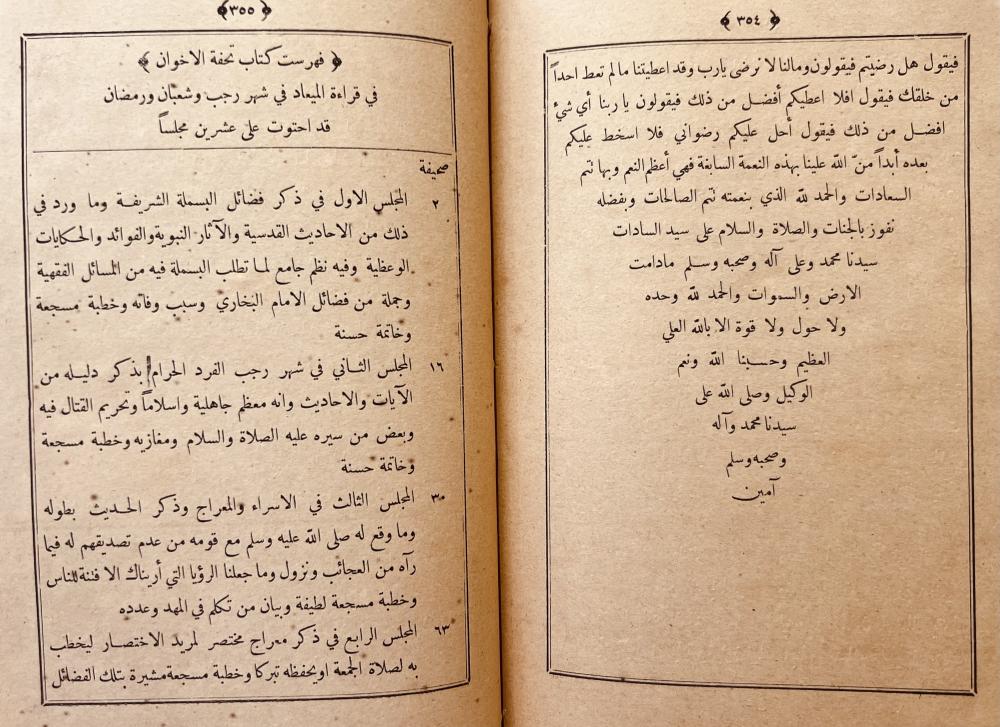 ﴿ ٣٥٤ ﴾
فيقول هل رضيتم فيقولون ومالنا لا نرضى يارب وقد اعطيتنا ما لم تعط احداً
من خلقك فيقول افلا اعطيكم أفضل من ذلك فيقولون يا ربنا أي شئ
افضل من ذلك فيقول أحل عليكم رضواني فلا اسخط عليكم
بعده أبداً منّ الله علينا بهذه النعمة السابغة فهي أعظم النعم وبها تتم
السعادات والحمد لله الذي بنعمته تتم الصالحات وبفضله
نفوز بالجنات والصلاة والسلام على سيد السادات
سيدنا محمد وعلى آله وصحبه وسلم مادامت
الارض والسموات والحمد لله وحده
ولا حول ولا قوة الا بالله العلي
العظيم وحسبنا الله ونعم
الوكيل وصلى الله على
سيدنا محمد وآله
وصحبه وسلم
آمين
﴿ ٣٥٥ ﴾
﴿ فهرست كتاب تحفة الاخوان ﴾
في قراءة الميعاد في شهر رجب وشعبان ورمضان
قد احتوت على عشرين مجلساً
صحيفة
٢ المجلس الاول في ذكر فضائل البسملة الشريفة وما ورد في
ذلك من الاحاديث القدسية والآثار النبوية والفوائد والحكايات
الوعظية وفيه نظم جامع لما تطلب البسملة فيه من المسائل الفقهية
وجملة من فضائل الامام البخاري وسبب وفاته وخطبة مسجعة
وخاتمة حسنة
١٦ المجلس الثاني في شهر رجب الفرد الحرام بذكر دليله من
الآيات والاحاديث وانه معظم جاهلية واسلاماً وتحريم القتال فيه
وبعض من سيره عليه الصلاة والسلام ومغازيه وخطبة مسجعة
وخاتمة حسنة
٣٠ المجلس الثالث في الاسراء والمعراج وذكر الحديث بطوله
وما وقع له صلى الله عليه وسلم مع قومه من عدم تصديقهم له فيما
رآه من العجائب ونزول وما جعلنا الرؤيا التي أريناك الا فتنة للناس
وخطبة مسجعة لطيفة وبيان من تكلم في المهد وعدده
٦٣ المجلس الرابع في ذكر معراج مختصر لمريد الاختصار ليخطب
به لصلاة الجمعة او يحفظه تبركا وخطبة مسجعة مشيرة بتلك الفضائل